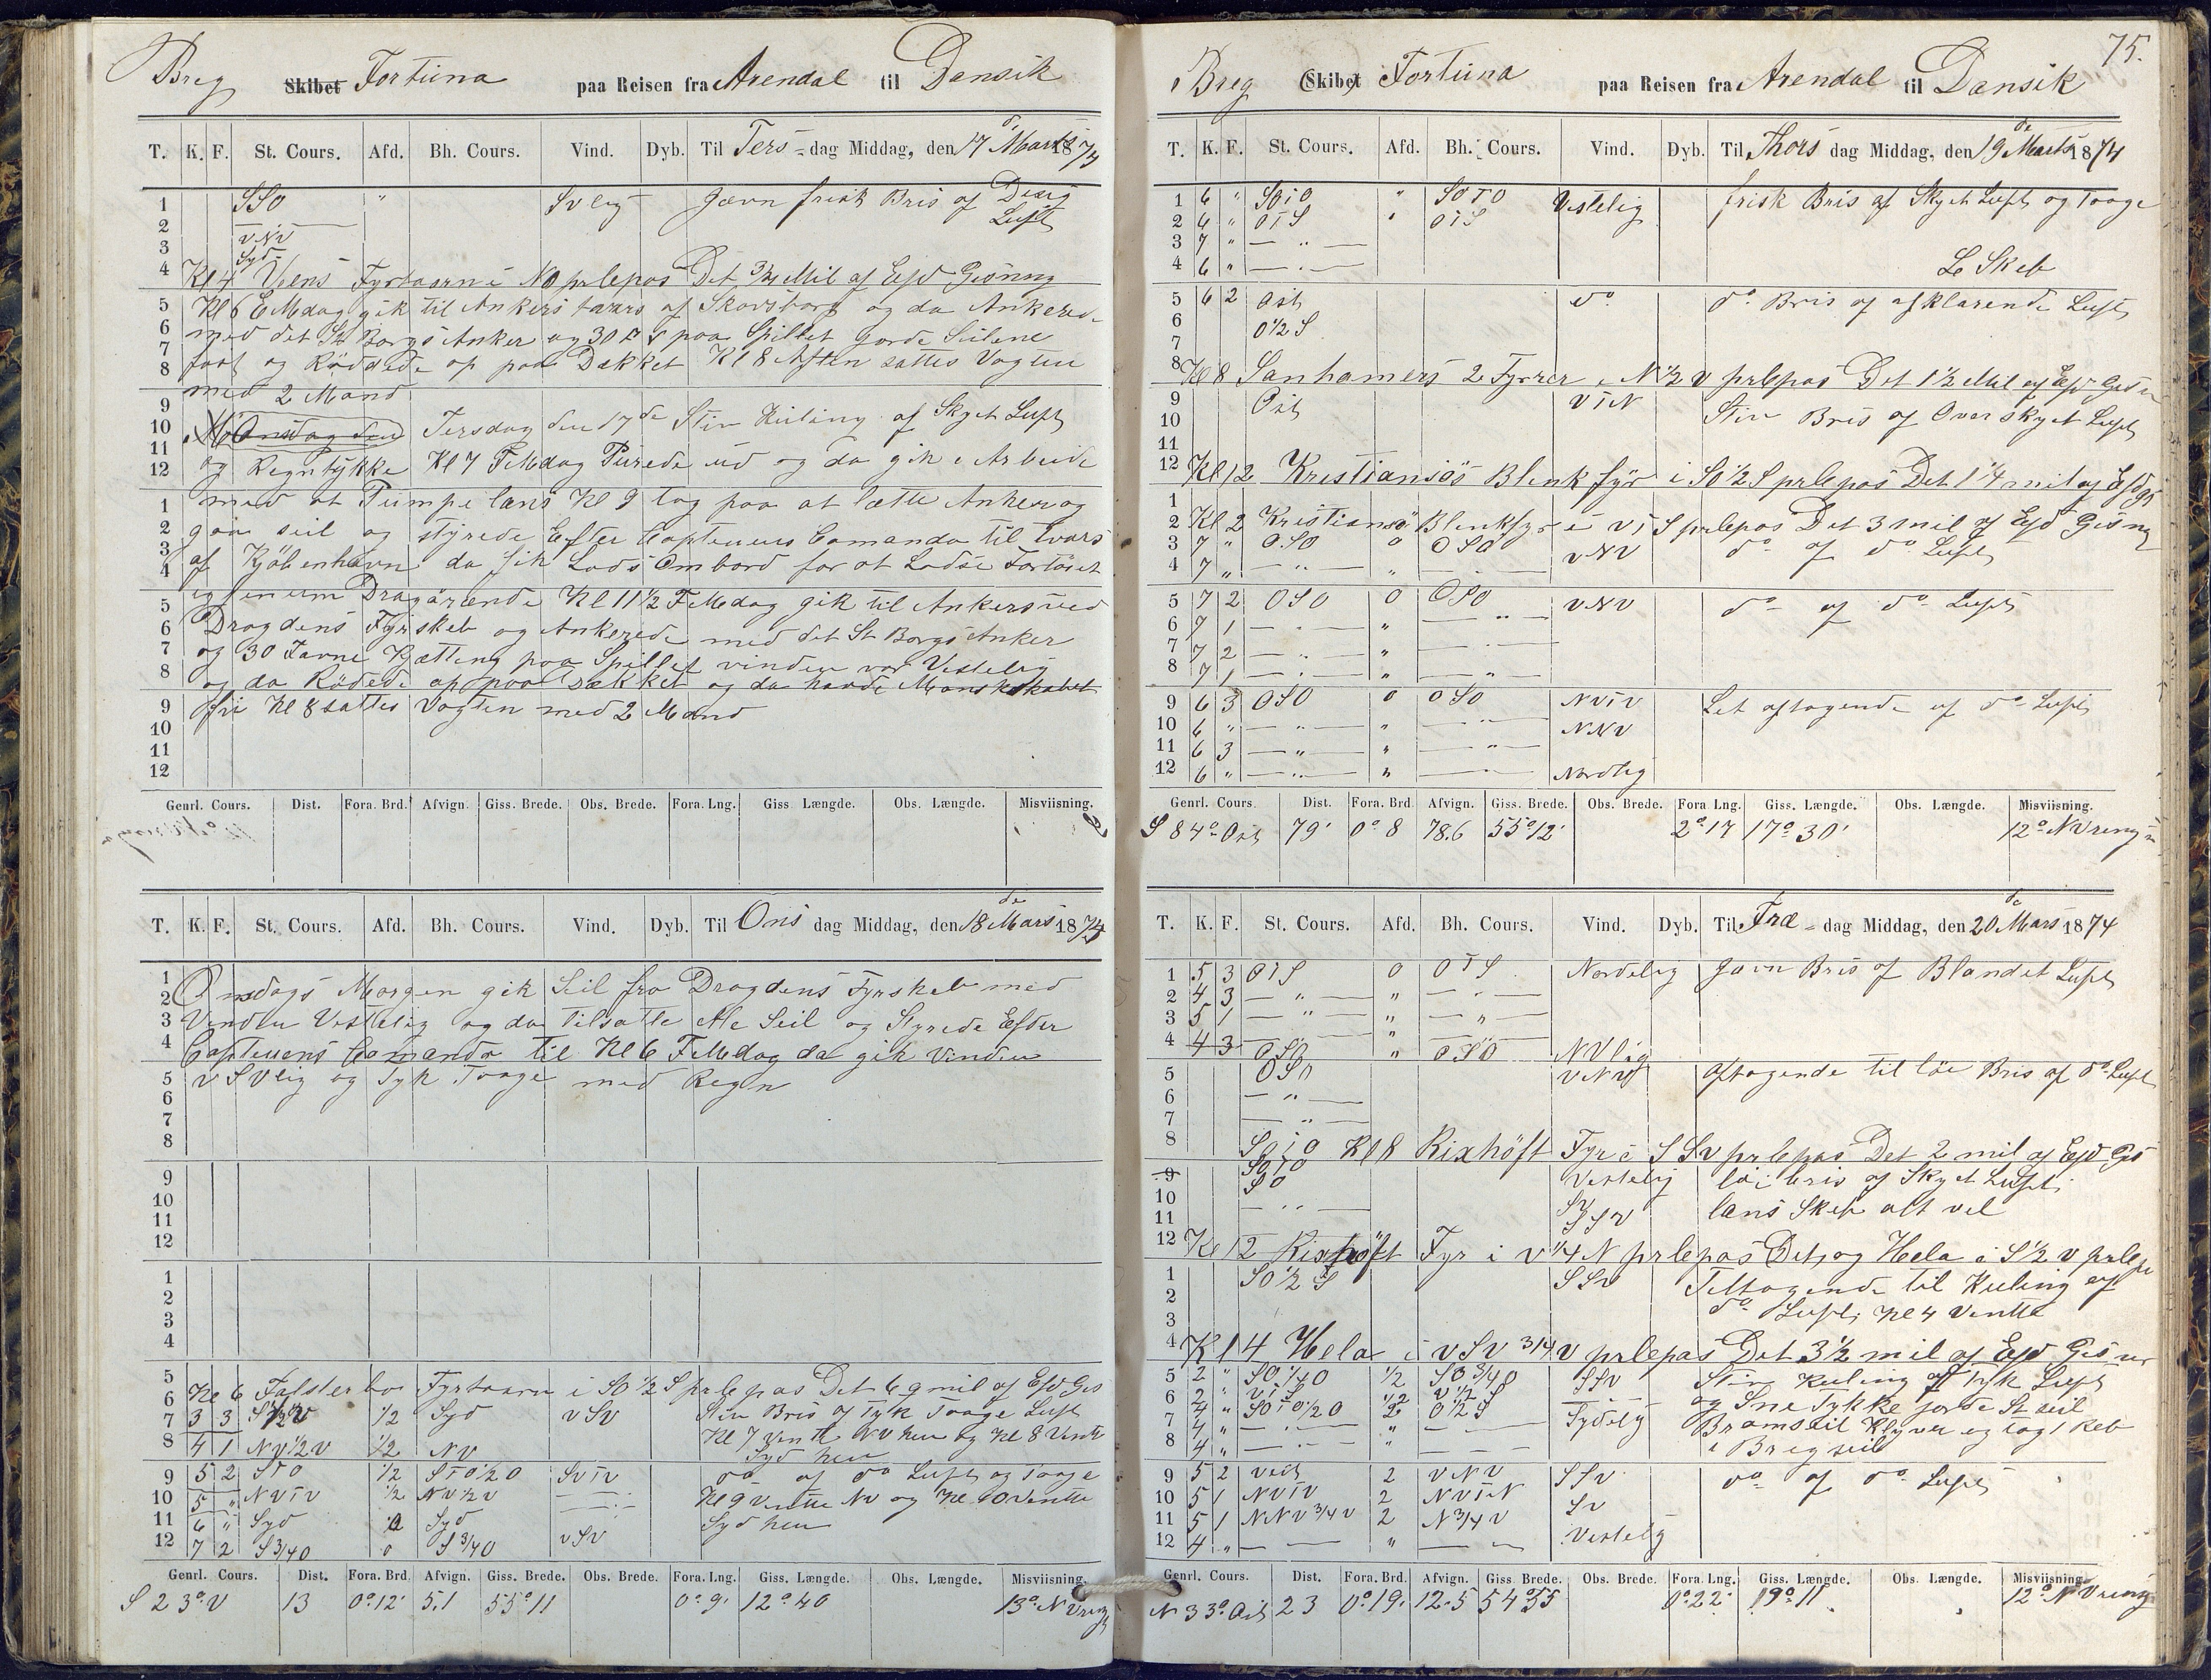 Breg Skibet Fortuna paa Reisen fra Arendal til Dansik
T. K. F. St. Cours. Afd. Bh. Cours. Vind. Dyb. Til Ters-dag Middag, den 17 d. Marts 1874
1 SSO " Svlig Jævn frisk Bris af Desig
2 Luft
3 vNv
4 Syd
Kl 4 Veens Fyrtaarn i NO prlepas Det 3/4 Mil af Esd Gisning
5 Kl 6 EMdag gik til Ankers tværs af Skovsborg og da Ankerede
6 med det St Borgs Anker og 30 F s paa Spillet gorde Seilene
7 fast og Röddede op paa Dækket Kl 8 Aften sattes Vagten
8 med 2 Mand
9
10 Onsdag den Tersdag den 17de Stiv Kuling af Skyet Luft
11 og Regntykke Kl 7 FMdag Purrede ud og da gik i Arbeide
12 med at Pumpe læns Kl 9 tog paa at lætte Anker og
1 gaa seil og styrede Efter Captenens Comando til tværs
2 af Kjöbenhavn da fik Lods Ombord for at Lodse Fartöiet
3
4 igjenem Dragörende Kl 11 1/2 FMdag gik til Ankers ved
5 Dragdens Fyrskeb og Ankerede med det St Borgs Anker
6 og 30 Favne Kjætting paa Spillet vinden var Vestelig
7 og da Rödede op paa Dækket og da havde Manskskabet
8 fri Kl 8 sattes Vagten med 2 Mand
9
10
11
12
Genrl. Cours. Dist. Fora. Brd. Afvign. Giss. Brede. Obs. Brede. Fora. Lng. Giss Længde. Obs. Længde. Misviisning.
T. K. F. St. Cours. Afd. Bh. Cours. Vind. Dyb. Til Ons dag Middag, den 18 de Mars 1874
1 Onsdags Morgen gik Seil fra Dragdens Fyrskeb med
2
3 Vinden Vestelig og da tilsatte Ale Seil og Styrede Efder
4 Captenens Comando til Kl 6 FMdag da gik Vinden
5 v Svlig og Tyk Taage med Regn
6
7
8
9
10
11
12
1
2
3
4
5
6 Kl 6 Falsterbo Fyrtaarn i SO 1/2 S prlepas Det 6.9 mil af Esd Gis
7 3 3 S 1/2 v 1/2 Syd vSv Stiv Bris af Tyk Taage Luft
Kl 7 vendt NV hen og Kl 8 Vendte
8 4 1 Nv 1/2 v 1/2 Nv Syd hen
9 5 2 STO 1/2 STO 1/2 O SvTv do af do Luft og Taage
10 5 " NvTv 1/2 Nv 1/2 v Kl 9 Vendte Nv og Kl 10 Vendte
11 6 " Syd 0 Syd Syd hen
12 7 2 S 3/4 O 0 S 3/4 O vSv
Genrl. Cours. Dist. Fora. Brd. Afvign. Giss. Brede. Obs. Brede. Fora. Lng. Giss. Længde. Obs. Længde. Misviisning.
S 23° V 13 0° 12' 5.1 55° 11 0° 9' 12° 40 13° NVreng
75.
Breg (Skibet) Fortuna paa Reisen fra Arendal til Dansik
T. K. F. St. Cours. Afd. Bh. Cours. Vind. Dyb. Til Thors dag Middag, den 19 de Marts 1874
1 6 " SOTO " SOTO Vestelig frisk Bris af Skyet Luft og Taage
2 6 " OTS " OTS
3 7 " — " —
4 6 " — " — Le Skeb
5 6 2 Ost do do Bris af afklarende Luft
6 O 1/2 S
7
8 Kl 8 Sanhamers 2 Fyrer i N 1/2 v prlepas Det 1 1/2 Mil af Esd Gis
9 Ost vTN Stiv Bris af Overskyet Luft
10
11
12 Kl 12 Kristiansös Blink fyr i SO 1/2 S prlepas Det 1 1/4 mil af Esd gs
1
2 Kl 2 Kristiansö Blinkfyr i vTS prlepas Det 3 mil af Esd Gisng
3 7 " OSO 0 OSO vNv do af do Luft
4 7 " — " — "
5 7 2 OSO 0 OSO vNv do af do Luft
6 7 1 — " — " — " —
7 7 2 — " — " — " —
8 7 1 — " — " — " —
9 6 3 OSO 0 OSO NvTv Let aftagende af do Luft
10 6 " — " — " — " — NNv
11 6 3 — " — " — " —
12 6 " — " — " — " — Nordlig
Genrl. Cours. Dist. Fora. Brd. Afvign. Giss. Brede. Obs. Brede. Fora Lng. Giss. Længde. Obs. Længde. Misviisning.
S 84° Ost 79' 0° 8 78.6 55° 12' 2° 17 17° 30' 12° NVreng
T. K. F. St. Cours. Afd. Bh. Cours. Vind. Dyb. Til Fre-dag Middag, den 20 de Mars 1874
1 5 3 OTS 0 OTS Nordelig Jævn Bris af Blandet Luft
2 4 3 — " — " — " —
3 5 1 — " — " — " —
4 4 3 OSO " OSO NVlig
5 OSO vNv Aftagende til löi Bris af do Luft
6 — " —
7 — " —
8 SOTO Kl 8 Rixhöft Fyr i SSv prlepas Det 2 mil af Esd Gis
9 SOTO Vestelig löi bris af Skyet Luft
10 SO Sv læns Skeb alt vel
11 — " — SSv
12 Kl 12 Rixhöft Fyr i v 1/4 N prlepas Det, og Hela i S 1/2 v prlepa
1 SO 1/2 S SSv Tiltagende til Kuling af
2 do Luft, Kl 4 Vendte
3
4 Kl 4 Hela i vSv 3/4 v prlepas Det 3 1/2 mil af Esd Gisn
5 2 " SO 1/4 O 1/2 SO 3/4 O SSv Stiv Kuling af Tyk Luft
6 2 " vTS 1/2 v 1/2 S og Sne Tykke gorde St seil
7 4 " SOTO 1/2 O 2 O 1/2 S Sydelig Bramseil Klyver og tog 1 Reb
8 4 " — " — " — i Bregseil
4 " — " — "
9 5 2 Vest 2 vNv SSv do af do Luft
10 5 1 NvTv 2 NvTN Sv
11 5 1 NNv 3/4 v 2 N 3/4 v
12 4 " — — " — Vestelig
Genrl. Cours. Dist. Fora. Brd. Afvign. Giss. Brede. Obs. Brede. Fora. Lng. Giss. Længde. Obs. Længde. Misviisning.
N 33° Ost 23 0° 19' 12.5 54° 55 0° 22' 19° 11 12° NVreng